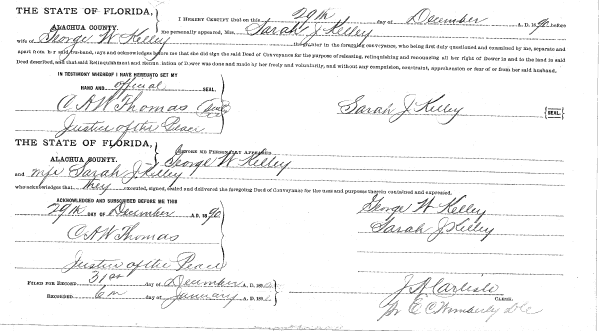 THE STATE OF FLORIDA,
ALACHUA COUNTY.
I HEREBY CERTIFY that on this 29th day of December A. D. 1890, before
me personally appeared, Mrs. Sarah J Kelley
wife of George W Kelley in the foregoing conveyance, who being first duly questioned and examined by me, separate and
apart from her said husband, says and acknowledges before me that she did sign the said Deed or Conveyance for the purpose of releasing, relinquishing and renouncing all her right of Dower in and to the land in said
Deed described, and that said Relinquishment and Renunciation of Dower was done and made by her freely and voluntarily, and without any compulsion, constraint, apprehension or fear of or from her said husband.
IN TESTIMONY WHEREOF I HAVE HEREUNTO SET MY
HAND AND official SEAL.
C. A W Thomas
Sarah J Kelley {SEAL.}
Justice of the Peace
THE STATE OF FLORIDA,
ALACHUA COUNTY.
BEFORE ME PERSONALLY APPEARED
George W Kelley
and wife Sarah J Kelley
who acknowledges that they executed, signed, sealed and delivered the foregoing Deed of Conveyance for the uses and purposes therein contained and expressed.
ACKNOWLEDGED AND SUBSCRIBED BEFORE ME THIS
29th DAY OF December A. D. 1890
George W Kelley
C. A W Thomas
Sarah J Kelley
Justice of the Peace
FILED FOR RECORD 31st day of December A. D. 189
J A Carlisle
CLERK.
RECORDED 6th day of January A. D. 189
Per E C Wimberly D C